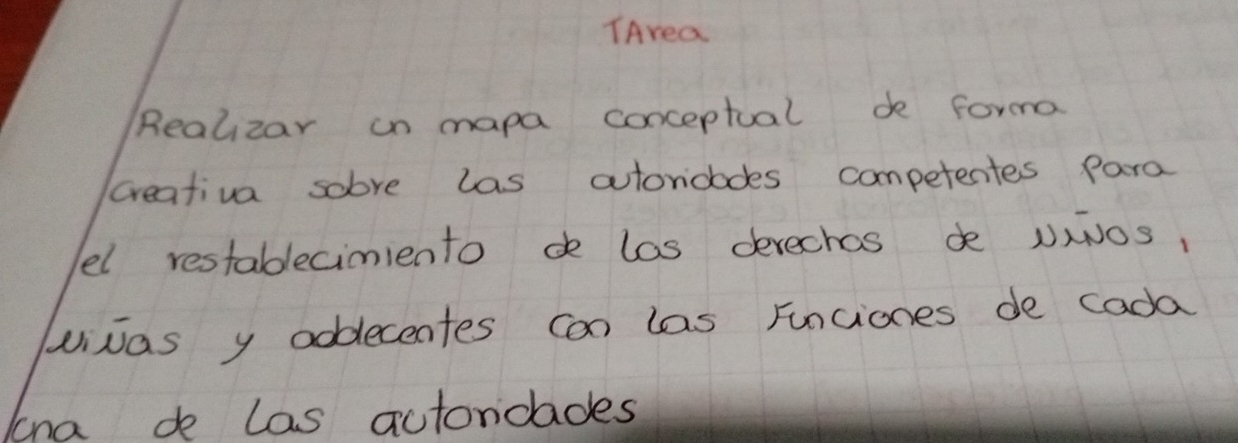 TArea
Realizar un mapa conceptual de forma
creativa sobre las autoridades competentes Para
el restablecimiento de los derechos de NiÑos,
NiÑas y adolecentes con las Funciones de cada
una de las autoridades